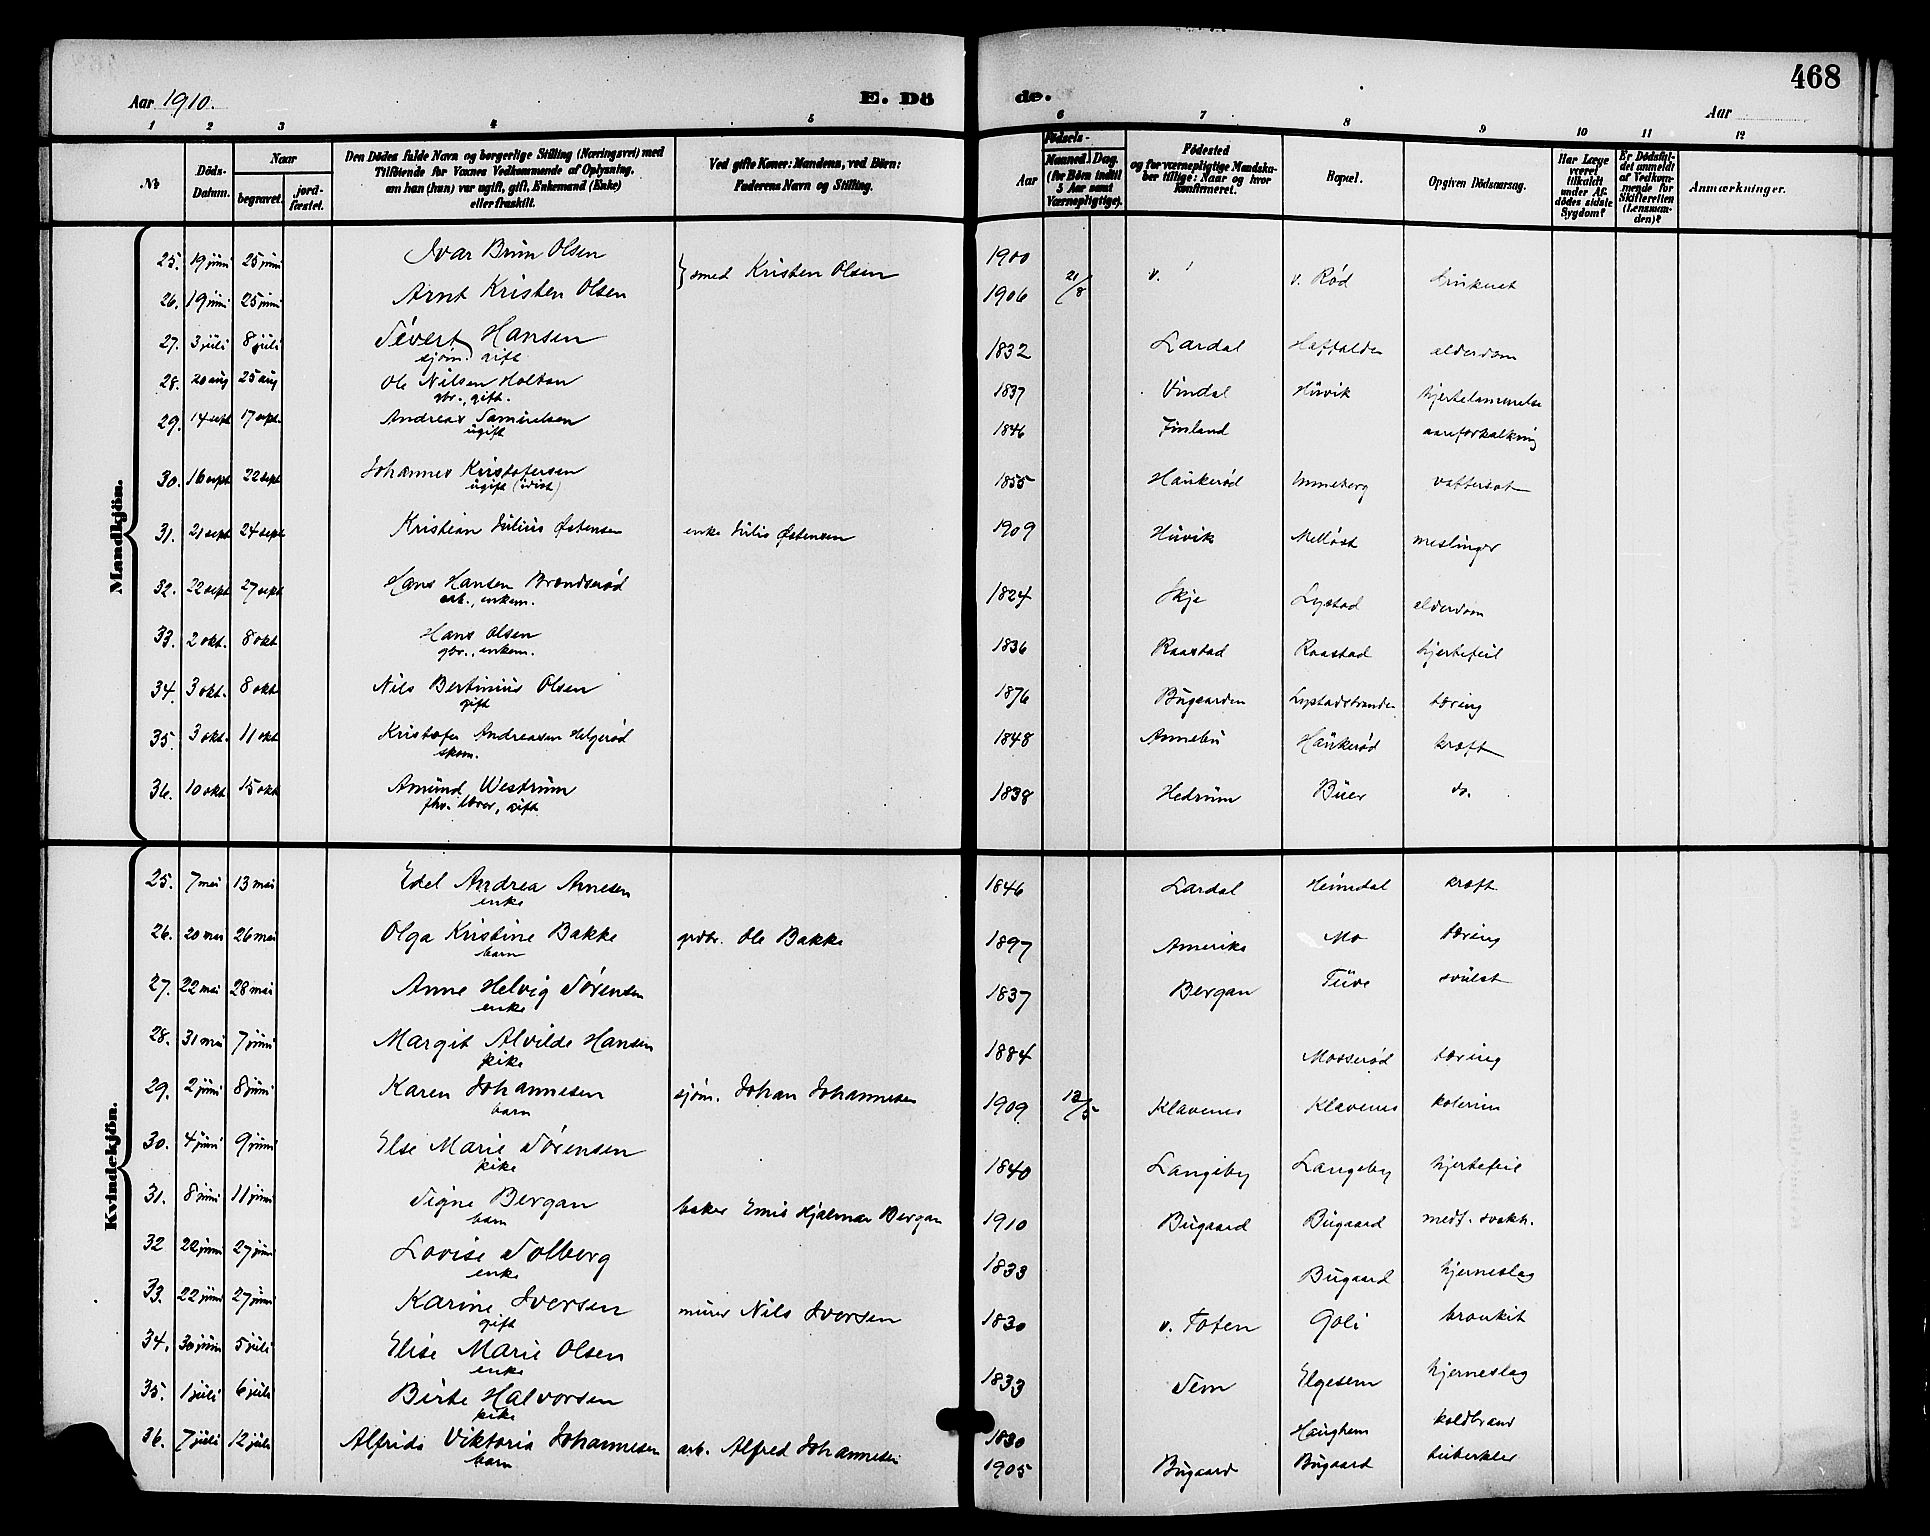 468
Aar 1910.
E. Dö de.
Aar
1 2 3 4 5 6 7 8 9 10 11 12
No
Döds-Datum.
Naar
begravet.
jord-fæstet.
Den Dödes fulde Navn og borgerlige Stilling (Næringsvei) med
Tilföiende for Voxnes Vedkommende af Oplysning,
om han (hun) var ugift, gift, Enkemand (Enke)
eller fraskilt.
Ved gifte Koner: Mandens, ved Börn:
Faderens Navn og Stilling.
Födsels-
Aar
Maaned. Dag.
(for Börn indtil
5 Aar samt
Værnepligtige).
Födested
og for værnepligtige Mandska-
ber tillige: Naar og hvor
konfirmeret.
Bopæl.
Opgiven Dödsaarsag.
Har Læge
været
tilkaldt
under Af-
dödes sidste
Sygdom?
Er Dödsfal-
det anmeldt
af Vedkom-
mende for
Skifteretten
(Lensman-
den)?
Anmærkninger.
Mandkjön.
25. 19 juni 25 juni Ivar Brun Olsen } smed Kristen Olsen 1900 v. v. Rød druknet
26. 19 juni 25 juni Arnt Kristen Olsen 1906 21/8
27. 3 juli 8 juli Sivert Hansen 1832 Lardal alderdom
sjøm. gift
28. 20 aug 25 aug Ole Nilsen Holtan 1837 Vindal Huvik hjertelammelse
gbr., gift.
29. 14 sept 17 sept. Andreas Samuelsen 1846 Finland aareforkalkning
ugift
30. 16 sept 22 sept Johannes Kristofersen 1855 Haukerød Unneberg vattersot
ugift (idiot)
31. 21 sept 24 sept Kristian Julius Østensen enke Julie Østensen 1909 Huvik Melløst meslinger
32. 22 sept 27 sept Hans Hansen Brendsrød 1824 Skje Lystad alderdom
arb., enkem.
33. 2 okt. 8 okt Hans Olsen 1836 Raastad Raastad hjertefeil
gbr., enkem.
34. 3 okt. 8 okt Nils Bertinius Olsen 1876 Bugaarden Lystadstranden tæring
gift
35. 3 okt. 11 okt Kristofer Andreasen Helgerød 1848 Annebu Haukerød kræft
skom.
36. 10 okt 15 okt Amund Westrum 1838 Hedrum Buer do.
fhv. lærer, gift
Kvindekjön.
25. 7 mai 13 mai Edel Andrea Arnesen 1846 Lardal Heimdal kræft
enke
26. 20 mai 26 mai Olga Kristine Bakke grdbr. Ole Bakke 1897 Amerika Mo tæring
barn
27. 22 mai 28 mai Anne Helvig Sørensen 1837 Bergan Tuve svulst
enke
28. 31 mai 7 juni Margit Alvilde Hansen 1884 Mosserød tæring
pike
29. 2 juni 8 juni Karen Johannesen sjøm. Johan Johannesen 1909 12/5 Klavenes Klavenes kolerin
barn
30. 4 juni 9 juni Else Marie Sørensen 1840 Langeby Langeby hjertefeil
pike
31. 8 juni 11 juni Signe Bergan baker Emil Hjalmar Bergan 1910 Bugaard Bugaard medf. svakh.
barn
32 22 juni 27 juni Lovise Solberg 1833 Bugaard hjerneslag
enke
33. 22 juni 27 juni Karine Iversen murer Nils Iversen 1830 v. Toten Goli bronkit
gift
34. 30 juni 5 juli Elise Marie Olsen 1833 Sem Elgesem hjerneslag
enke
35. 1 juli 6 juli Birte Halvorsen 1830 Haughem koldbrand
pike
36. 7 juli 12 juli Alfrida Viktoria Johannesen arb. Alfred Johannesen 1905 Bugaard Bugaard tuberkler
barn